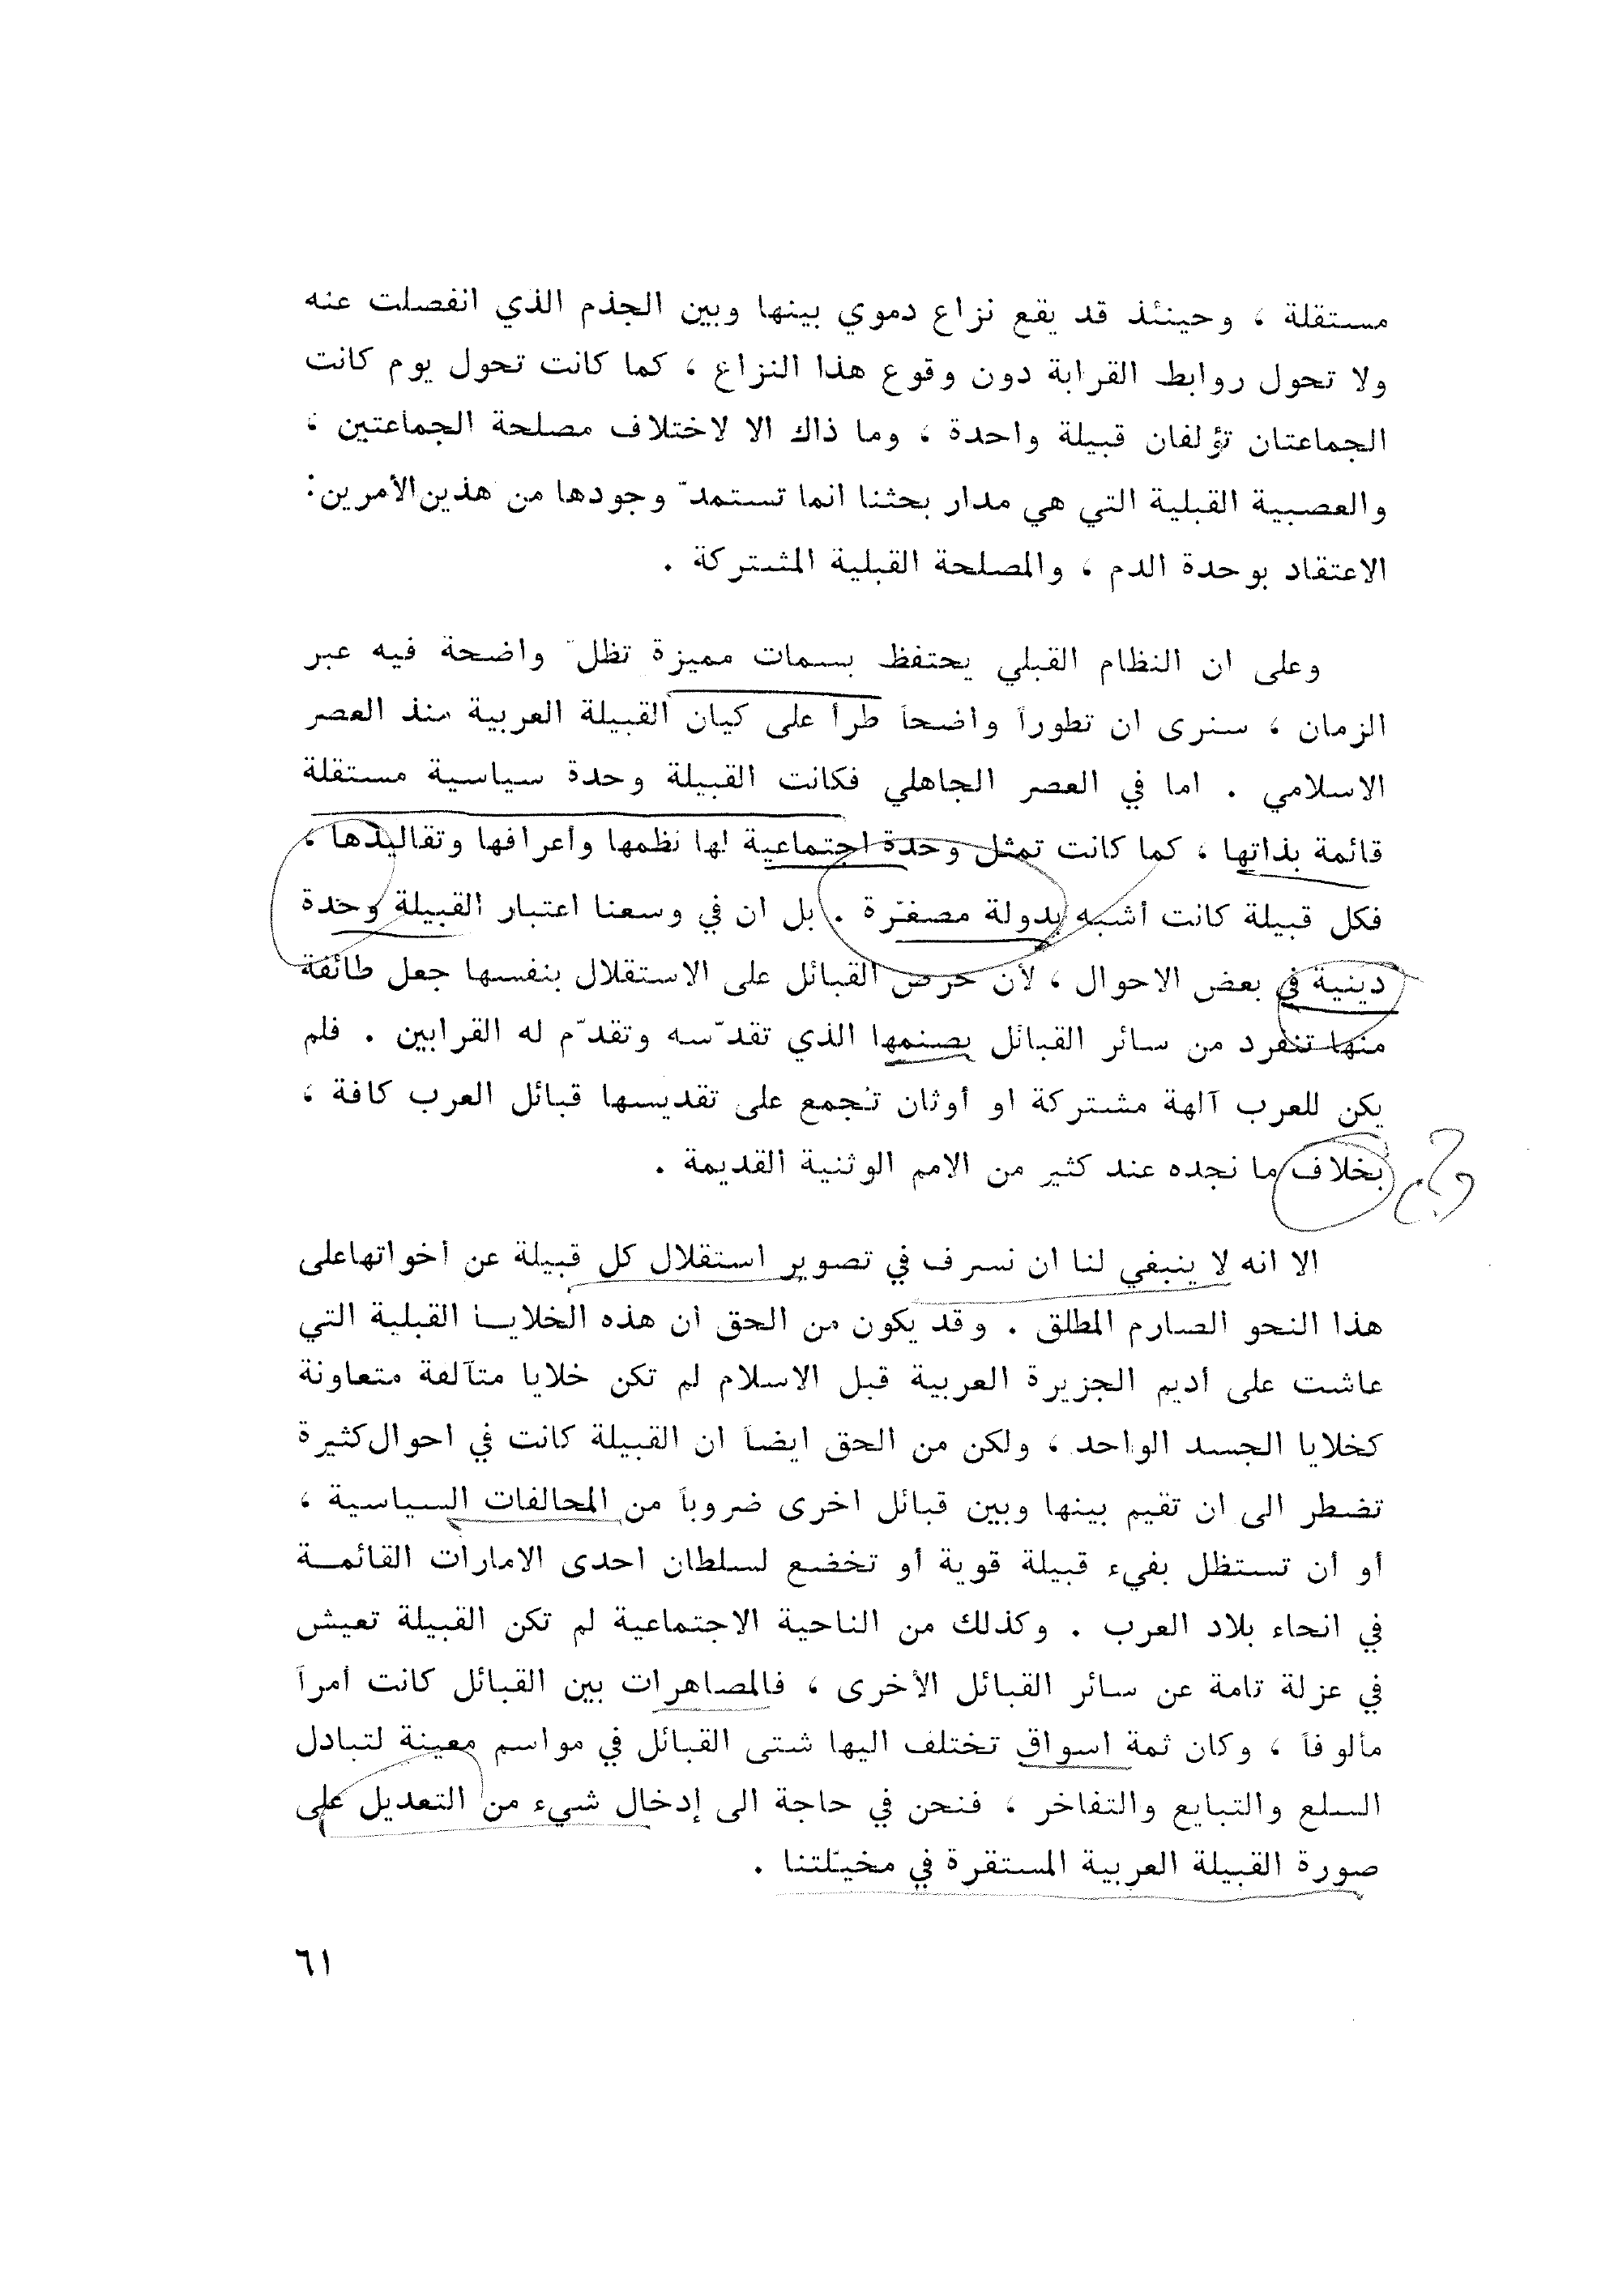 مستقلة ، وحينئذ قد يقع نزاع دموي بينها وبين الجذم الذي انفصلت عنه
ولا تحول روابط القرابة دون وقوع هذا النزاع ، كما كانت تحول يوم كانت
الجماعتان تؤلفان قبيلة واحدة ، وما ذاك الا لاختلاف مصلحة الجماعتين ،
والعصبية القبلية التي هي مدار بحثنا انما تستمدّ وجودها من هذين الأمرين:
الاعتقاد بوحدة الدم ، والمصلحة القبلية المشتركة .
وعلى ان النظام القبلي يحتفظ بسمات مميزة تظلّ واضحة فيه عبر
الزمان ، سنرى ان تطوراً واضحاً طرأ على كيان القبيلة العربية منذ العصر
الاسلامي . اما في العصر الجاهلي فكانت القبيلة وحدة سياسية مستقلة
قائمة بذاتها ، كما كانت تمثل وحدة اجتماعية لها نظمها وأعرافها وتقاليدها ،
فكل قبيلة كانت أشبه بدولة مصغّرة . بل ان في وسعنا اعتبار القبيلة وحدة
دينية في بعض الاحوال ، لأن حرص القبائل على الاستقلال بنفسها جعل طائفة
منها تنفرد من سائر القبائل بصنمها الذي تقدّسه وتقدّم له القرابين . فلم
يكن للعرب آلهة مشتركة او أوثان تجمع على تقديسها قبائل العرب كافة ،
بخلاف ما نجده عند كثير من الامم الوثنية القديمة .
الا انه لا ينبغي لنا ان نسرف في تصوير استقلال كل قبيلة عن أخواتها على
هذا النحو الصارم المطلق . وقد يكون من الحق أن هذه الخلايا القبلية التي
عاشت على أديم الجزيرة العربية قبل الاسلام لم تكن خلايا متآلفة متعاونة
كخلايا الجسد الواحد ، ولكن من الحق ايضاً ان القبيلة كانت في احوال كثيرة
تضطر الى ان تقيم بينها وبين قبائل اخرى ضروباً من المحالفات السياسية ،
أو أن تستظل بفيء قبيلة قوية أو تخضع لسلطان احدى الامارات القائمة
في انحاء بلاد العرب . وكذلك من الناحية الاجتماعية لم تكن القبيلة تعيش
في عزلة تامة عن سائر القبائل الأخرى ، فالمصاهرات بين القبائل كانت أمراً
مألوفاً ، وكان ثمة اسواق تختلف اليها شتى القبائل في مواسم معينة لتبادل
السلع والتبايع والتفاخر ، فنحن في حاجة الى إدخال شيء من التعديل على
صورة القبيلة العربية المستقرة في مخيّلتنا .
٦١